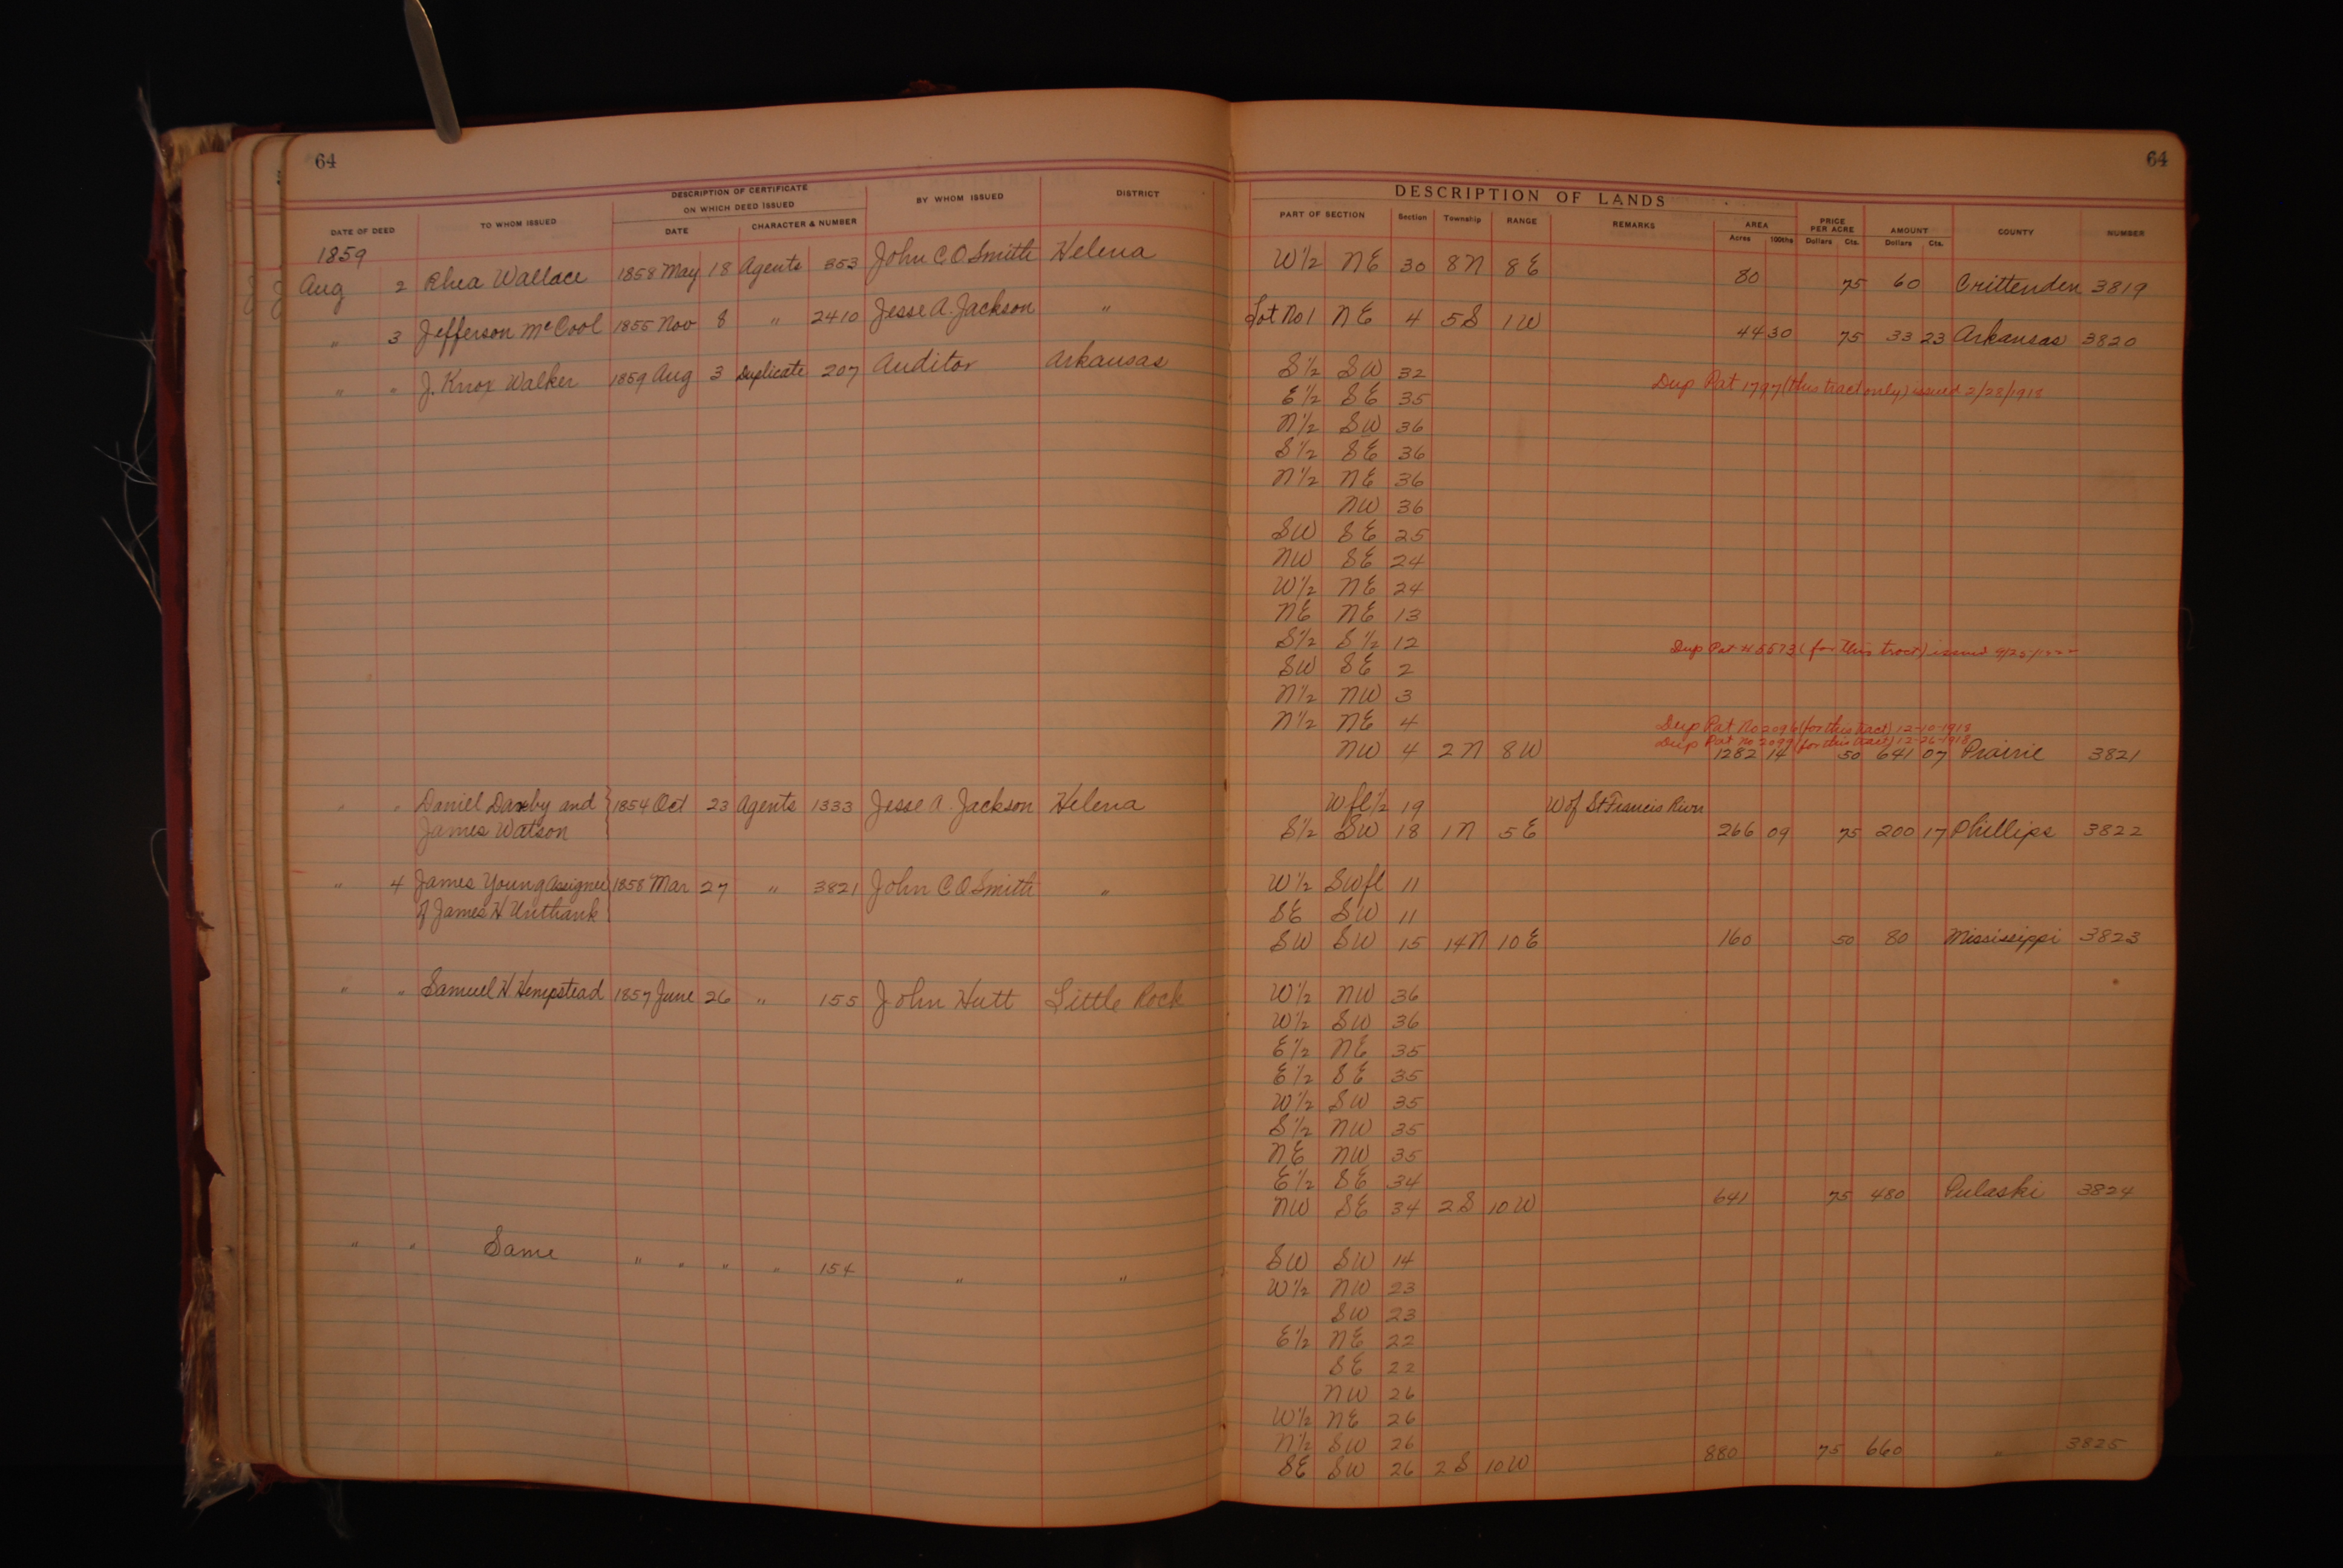 64
64
DESCRIPTION OF CERTIFICATE
ON WHICH DEED ISSUED
DATE OF DEED TO WHOM ISSUED DATE CHARACTER & NUMBER BY WHOM ISSUED DISTRICT
DESCRIPTION OF LANDS
PART OF SECTION Section Township RANGE REMARKS AREA Acres 100ths PRICE PER ACRE Dollars Cts. AMOUNT Dollars Cts. COUNTY NUMBER
1859
Aug 2 Rhea Wallace 1858 May 18 Agents 853 John C O Smith Helena W 1/2 NE 30 8N 8E 80 75 60 Crittenden 3819
" 3 Jefferson McCool 1855 Nov 8 " 2410 Jesse A. Jackson " Lot No 1 NE 4 5S 1W 44 30 75 33 23 Arkansas 3820
" " J. Knox Walker 1859 Aug 3 Duplicate 207 Auditor Arkansas S 1/2 SW 32 Dup Pat 1797 (this tract only) issued 2/28/1918
E 1/2 SE 35
N 1/2 SW 36
S 1/2 SE 36
N 1/2 NE 36
NW 36
SW SE 25
NW SE 24
W 1/2 NE 24
NE NE 13
S 1/2 S 1/2 12 Dup Pat # 5573 (for this tract) issued
SW SE 2
N 1/2 NW 3
N 1/2 NE 4 Dup Pat No 2096 (for this tract) 12-10-1918
Dup Pat no 2099 (for this tract) 12-26-1918
NW 4 2N 8W 1282 14 50 641 07 Prairie 3821
" " Daniel Darby and 1854 Oct 23 Agents 1333 Jesse A. Jackson Helena W fl 1/2 19 W of St Francis River
James Watson S 1/2 SW 18 1N 5E 266 09 75 200 17 Phillips 3822
" 4 James Young Assignee 1858 Mar 27 " 3821 John C O Smith " W 1/2 SW fl 11
of James H Unthank SE SW 11
SW SW 15 14N 10E 160 50 80 Mississippi 3823
" " Samuel H Hempstead 1857 June 26 " 155 John Hutt Little Rock W 1/2 NW 36
W 1/2 SW 36
E 1/2 NE 35
E 1/2 SE 35
W 1/2 SW 35
S 1/2 NW 35
NE NW 35
E 1/2 SE 34
NW SE 34 2S 10W 641 75 480 Pulaski 3824
" " Same " " " " 154 " " SW SW 14
W 1/2 NW 23
SW 23
E 1/2 NE 22
SE 22
NW 26
W 1/2 NE 26
N 1/2 SW 26
SE SW 26 2S 10W 880 75 660 " 3825